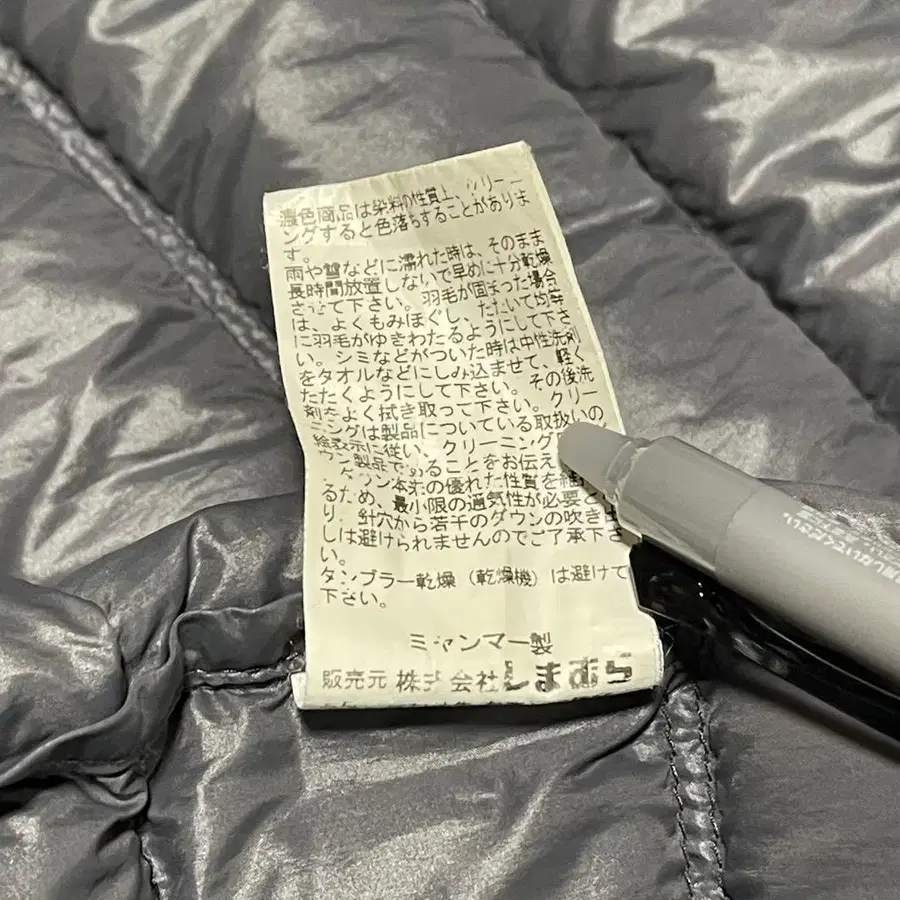 濃色商品は染料の性質上、クリーニ
ングすると色落ちすることがありま
す。
雨や雪などに濡れた時は、そのまま
長時間放置しないで早めに十分乾燥
させて下さい。羽毛が固まった場合
は、よくもみほぐし、たたいて均等
に羽毛がゆきわたるようにして下さ
い。シミなどがついた時は中性洗剤
をタオルなどにしみ込ませて、軽く
たたくようにして下さい。その後洗
剤をよく拭き取って下さい。クリー
ニングは製品についている取扱いの
絵表示に従い、クリーニング
ウン製品であることをお伝え
ダウン本来の優れた性質を維
るため、最小限の通気性が必要と
り、針穴から若干のダウンの吹き出
しは避けられませんのでご了承下さ
い。
タンブラー乾燥（乾燥機）は避けて
下さい。
ミャンマー製
販売元 株式会社しまむら